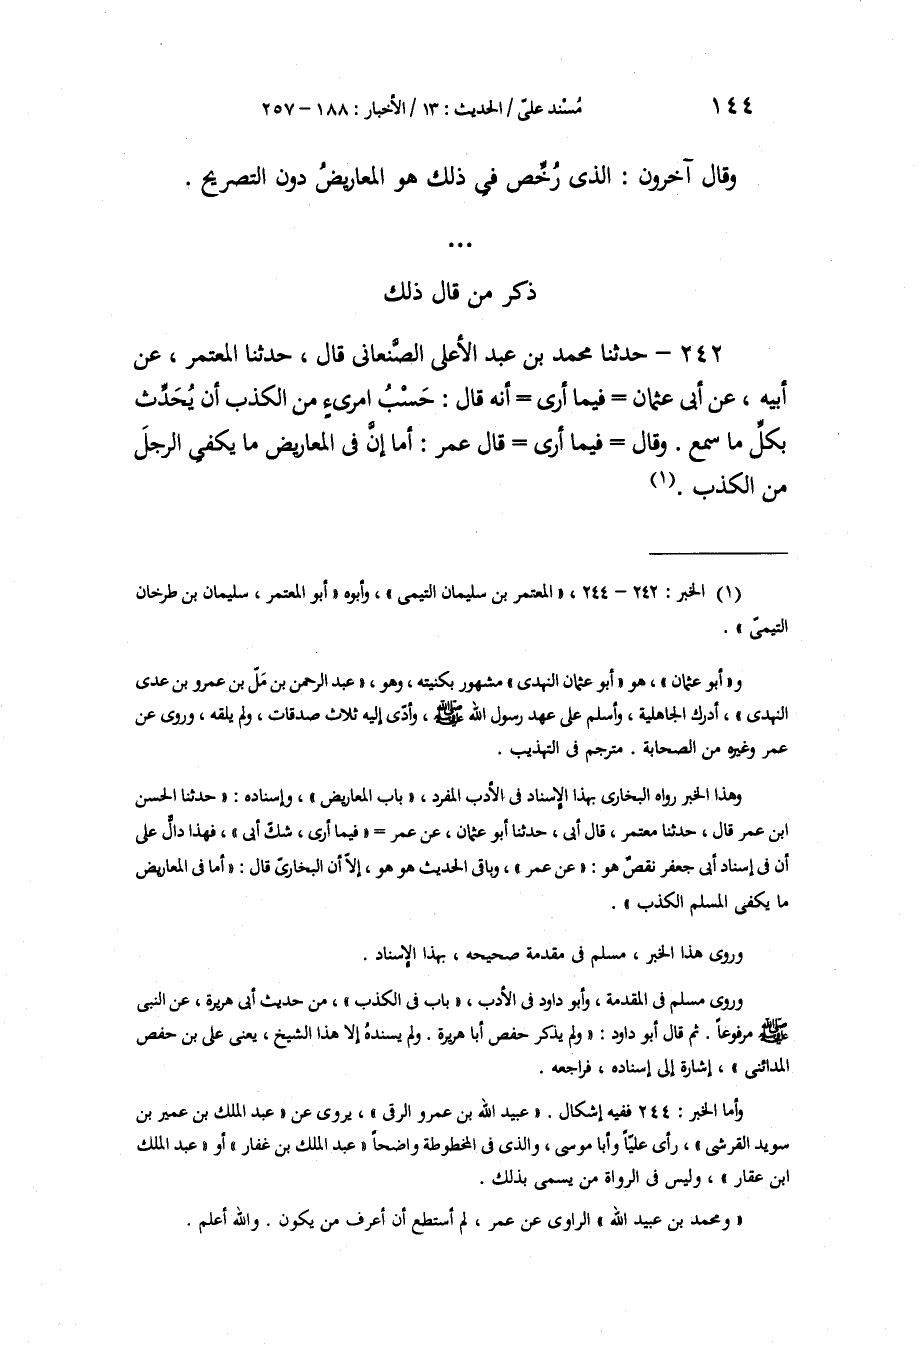 ١٤٤ مُسْند علىّ / الحديث : ١٣ / الأخبار : ١٨٨ – ٢٥٧
وقال آخرون : الذى رُخِّص في ذلك هو المعاريضُ دون التصريح .
...
ذكر من قال ذلك
٢٤٢ – حدثنا محمد بن عبد الأعلى الصَّنعانى قال ، حدثنا المعتمر ، عن
أبيه ، عن أبى عثمان = فيما أرى = أنه قال : حَسْبُ امرىءٍ من الكذب أن يُحَدِّث
بكلِّ ما سمع . وقال = فيما أرى = قال عمر : أما إنَّ فى المعاريض ما يكفي الرجلَ
من الكذب .(١)
(١) الخبر : ٢٤٢ – ٢٤٤ ، « المعتمر بن سليمان التيمى » ، وأبوه « أبو المعتمر ، سليمان بن طرخان
التيمىّ » .
و« أبو عثمان » ، هو « أبو عثمان النهدى » مشهور بكنيته ، وهو ، « عبد الرحمن بن مَلّ بن عمرو بن عدى
النهدى » ، أدرك الجاهلية ، وأسلم على عهد رسول الله ﷺ ، وأدّى إليه ثلاث صدقات ، ولم يلقه ، وروى عن
عمر وغيره من الصحابة . مترجم فى التهذيب .
وهذا الخبر رواه البخارى بهذا الإسناد فى الأدب المفرد ، « باب المعاريض » ، وإسناده : « حدثنا الحسن
ابن عمر قال ، حدثنا معتمر ، قال أبى ، حدثنا أبو عثمان ، عن عمر = « فيما أرى ، شكّ أبى » ، فهذا دالٌّ على
أن فى إسناد أبى جعفر نقصٌ هو : « عن عمر » ، وباقى الحديث هو هو ، إلاّ أن البخارىّ قال : « أما فى المعاريض
ما يكفى المسلم الكذب » .
وروى هذا الخبر ، مسلم فى مقدمة صحيحه ، بهذا الإسناد .
وروى مسلم فى المقدمة ، وأبو داود فى الأدب ، « باب فى الكذب » ، من حديث أبى هريرة ، عن النبى
ﷺ مرفوعاً . ثم قال أبو داود : « ولم يذكر حفص أبا هريرة . ولم يسندهُ إلا هذا الشيخ ، يعنى على بن حفص
المدائنى » ، إشارة إلى إسناده ، فراجعه .
وأما الخبر : ٢٤٤ ففيه إشكال . « عبيد الله بن عمرو الرقى » ، يروى عن « عبد الملك بن عمير بن
سويد القرشى » ، رأى عليّاً وأبا موسى ، والذى فى المخطوطة واضحاً « عبد الملك بن غفار » أو « عبد الملك
ابن عقار » ، وليس فى الرواة من يسمى بذلك .
« ومحمد بن عبيد الله » الراوى عن عمر ، لم أستطع أن أعرف من يكون . والله أعلم .